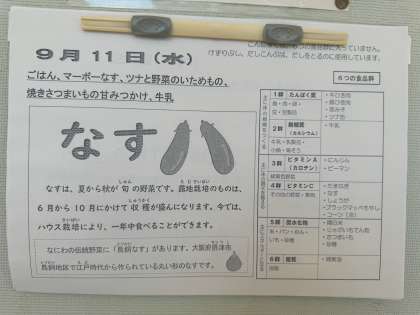 9月11日（水）
ごはん、マーボーなす、ツナと野菜のいためもの、
焼きさつまいもの甘みつかけ、牛乳
けずりぶし、だしこんぶは、だしをとるのに使用しています。
なす
なすは、夏から秋が旬の野菜です。露地栽培のものは、
6月から10月にかけて収穫が盛んになります。今では、
ハウス栽培により、一年中食べることができます。
なにわの伝統野菜に「鳥飼なす」があります。大阪府摂津市
鳥飼地区で江戸時代から作られている丸い形のなすです。
6つの食品群
1群 たんぱく質
・牛ひき肉
・豚ひき肉
・赤みそ
・ツナ缶
2群 無機質
(カルシウム)
・牛乳
3群 ビタミンA
(カロテン)
・にんじん
・ピーマン
緑黄色野菜
4群 ビタミンC
・たまねぎ
・なす
・しょうが
・コーン（冷）
5群 炭水化物
・じゃがいもでん粉
・さつまいも
・砂糖
6群 脂肪